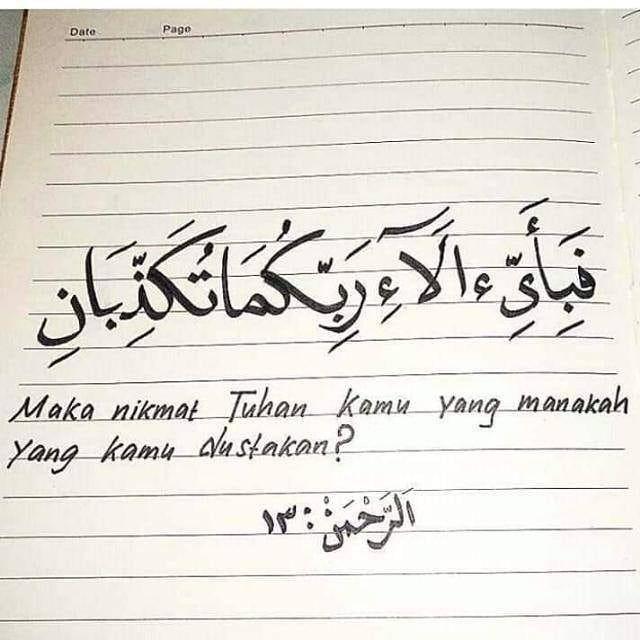 Date Page
فَبِأَيِّ ءَالَآءِ رَبِّكُمَا تُكَذِّبَانِ
Maka nikmat Tuhan kamu yang manakah
yang kamu dustakan?
الرَّحْمٰنْ : ١٣